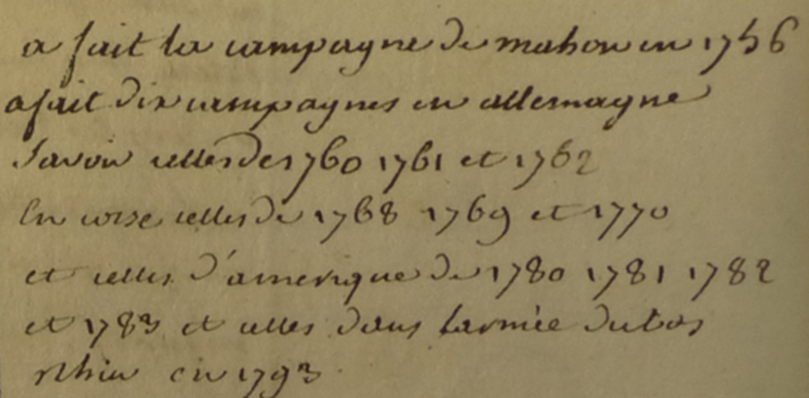 a fait la campagne de mahon en 1756
a fait dix campagnes en allemagne
Savoir celles de 1760 1761 et 1762
En corse celles de 1768 1769 et 1770
et celles d'amerique de 1780 1781 1782
et 1783 et celles dans l'armée du bas
rhin en 1793